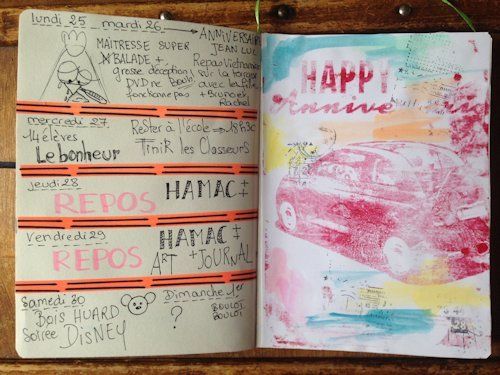 lundi 25 mardi 26
ANNIVERSAIRE
JEAN LUC
MAITRESSE SUPER
BALADE +
grosse déception
DVD ne
fonctionne pas
Repas Vietnamien
sur la terrasse
avec les filles
+ Brunoïes
Rachel
mercredi 27
14 élèves
Le bonheur
Rester à l'école → 18H30
FINIR les Classeurs
Jeudi 28
REPOS HAMAC
Vendredi 29
REPOS
HAMAC
ART + JOURNAL
Samedi 30
Dimanche 1er
BOIS HUARD
Soirée DISNEY
?
BOULOT
BOULOT
HAPPY
Anniversaire